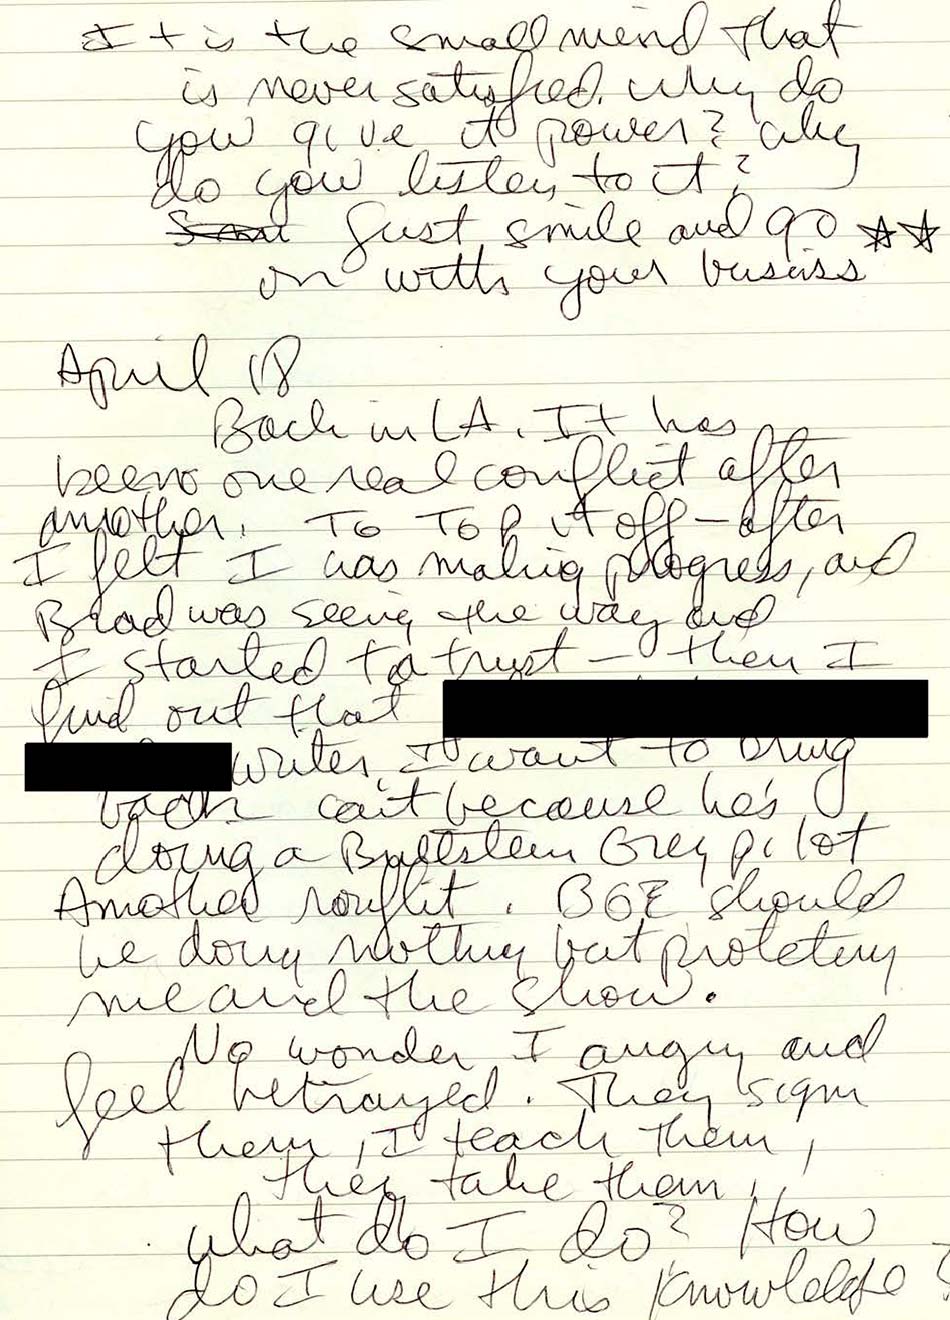 It is the small mind that
is never satisfied. why do
you give it power? why
do you listen to it?
Just smile and go ☆☆
on with your busiss
April 18
Back in LA. It has
been one real conflict after
another. To Top it off - after
I felt I was making progress, and
Brad was seeing the way and
I started to trust - then I
find out that
writer I want to bring
back can't because he's
doing a Brillstein Grey pilot
Another conflit. BGE should
be doing nothing but proteting
me and the show.
No wonder I angry and
feel betrayed. They sign
them, I teach them,
they take them,
what do I do? How
do I use this knowledge?